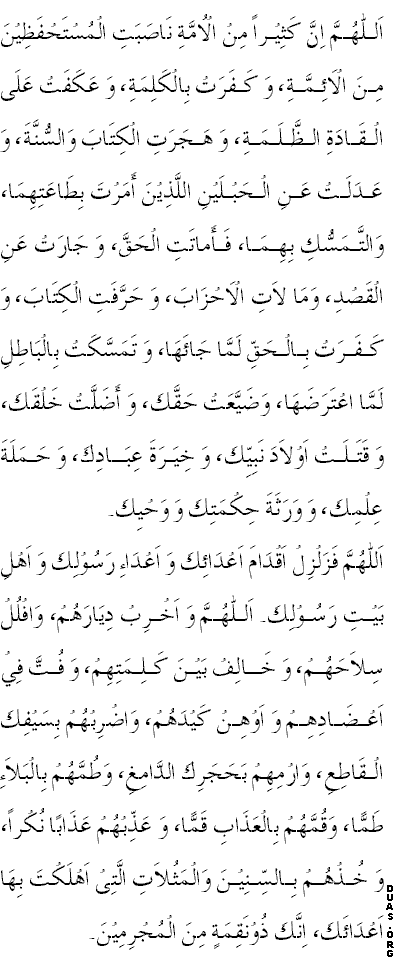 اَللّٰهُمَّ اِنَّ كَثِيْراً مِنْ الْاُمَّةِ نَاصَبَتِ الْمُسْتَحْفَظِيْنَ
مِنَ الْاَئِمَّةِ، وَ كَفَرَتْ بِالْكَلِمَةِ، وَ عَكَفَتْ عَلَى
الْقَادَةِ الظَّلَمَةِ، وَ هَجَرَتِ الْكِتَابَ وَالسُّنَّةَ، وَ
عَدَلَتْ عَنِ الْحَبْلَيْنِ اللَّذِيْنَ أَمَرْتَ بِطَاعَتِهِمَا،
وَالتَّمَسُّكِ بِهِمَا، فَأَمَاتَتِ الْحَقَّ، وَ جَارَتْ عَنِ
الْقَصْدِ، وَمَا لَاَتِ الْاَحْزَابَ، وَ حَرَّفَتِ الْكِتَابَ، وَ
كَفَرَتْ بِالْحَقِّ لَمَّا جَائَهَا، وَ تَمَسَّكَتْ بِالْبَاطِلِ
لَمَّا اعْتَرَضَهَا، وَضَيَّعَتْ حَقَّكَ، وَ أَضَلَّتْ خَلْقَكَ،
وَ قَتَلَتْ اَوْلَادَ نَبِيِّكَ، وَ خِيَرَةَ عِبَادِكَ، وَ حَمَلَةَ
عِلْمِكَ، وَ وَرَثَةَ حِكْمَتِكَ وَ وَحْيِكَ۔
اَللّٰهُمَّ فَزَلْزِلْ اَقْدَامَ اَعْدَائِكَ وَ اَعْدَاءِ رَسُوْلِكَ وَ اَهْلِ
بَيْتِ رَسُوْلِكَ۔ اَللّٰهُمَّ وَ اَخْرِبْ دِيَارَهُمْ، وَافْلُلْ
سِلَاحَهُمْ، وَ خَالِفْ بَيْنَ كَلِمَتِهِمْ، وَ فُتَّ فِيْ
اَعْضَادِهِمْ وَ اَوْهِنْ كَيْدَهُمْ، وَاضْرِبْهُمْ بِسَيْفِكَ
الْقَاطِعِ، وَارْمِهِمْ بِحَجَرِكَ الدَّامِغِ، وَطُمَّهُمْ بِالْبَلَاءِ
طَمًّا، وَقُمَّهُمْ بِالْعَذَابِ قَمًّا، وَ عَذِّبْهُمْ عَذَابًا نُكْراً،
وَ خُذْهُمْ بِالسِّنِيْنَ وَالْمَثُلَاتِ الَّتِىْ اَهْلَكْتَ بِهَا
اَعْدَائَكَ، اِنَّكَ ذُوْنَقِمَةٍ مِنَ الْمُجْرِمِيْنَ۔
DUAS.ORG